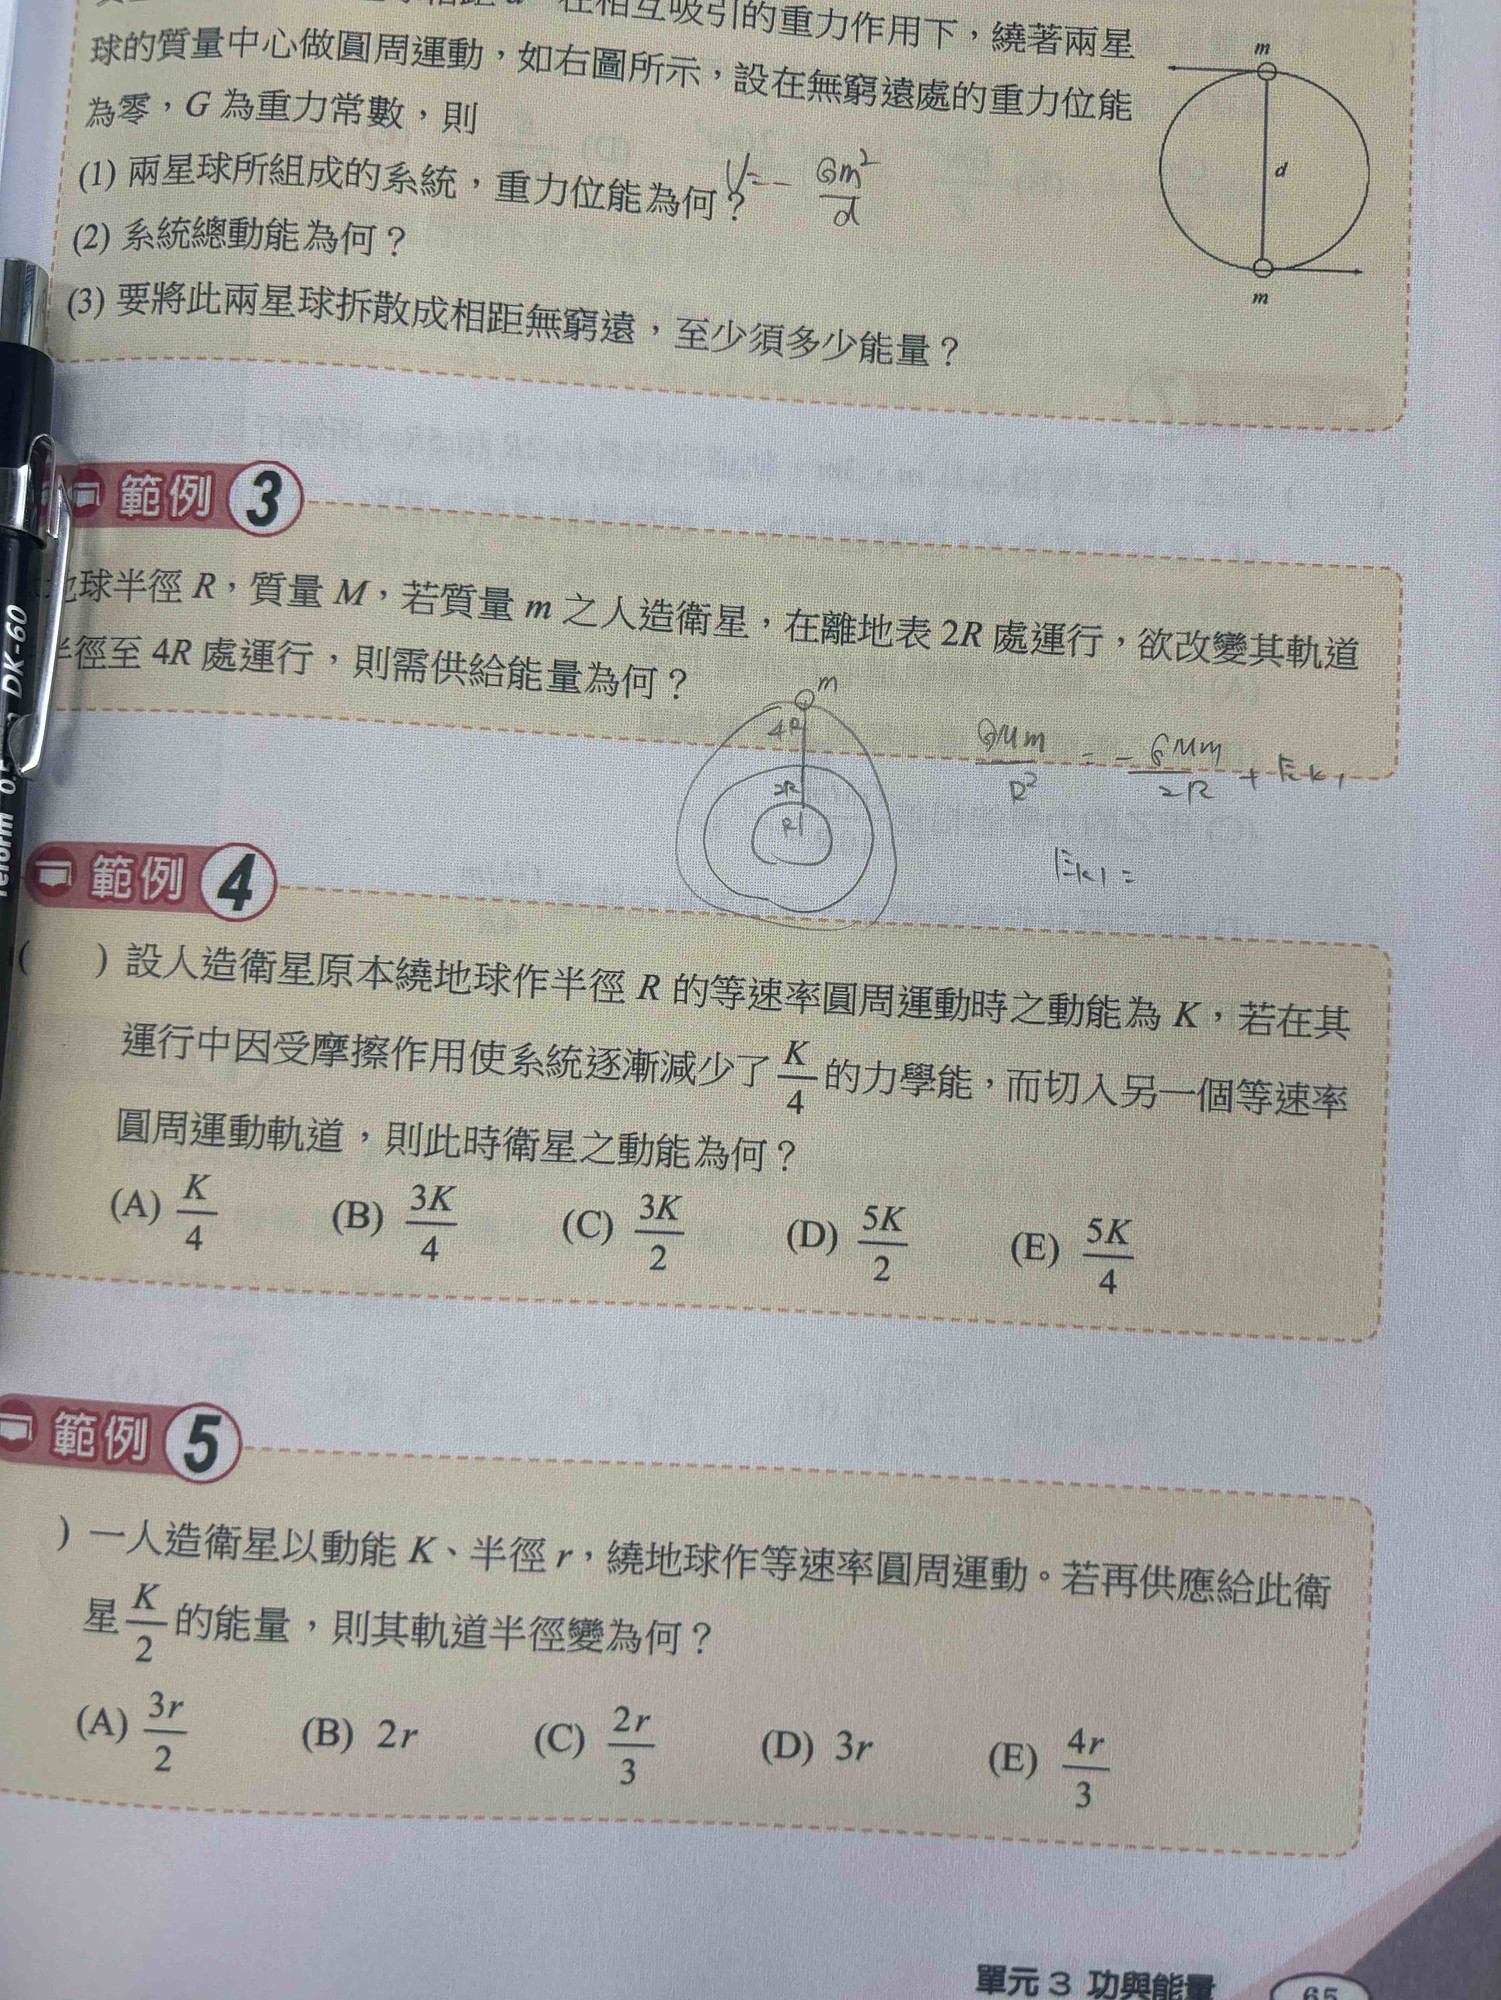 在相互吸引的重力作用下，繞著兩星
球的質量中心做圓周運動，如右圖所示，設在無窮遠處的重力位能
為零，G 為重力常數，則
(1) 兩星球所組成的系統，重力位能為何？ U=- Gm²/d
(2) 系統總動能為何？
(3) 要將此兩星球拆散成相距無窮遠，至少須多少能量？
m
d
m
範例 3
地球半徑 R，質量 M，若質量 m 之人造衛星，在離地表 2R 處運行，欲改變其軌道
半徑至 4R 處運行，則需供給能量為何？
m
4R
2R
R
GMm/R² = - GMm/2R + Ek1
Ek1 =
範例 4
( ) 設人造衛星原本繞地球作半徑 R 的等速率圓周運動時之動能為 K，若在其
運行中因受摩擦作用使系統逐漸減少了 K/4 的力學能，而切入另一個等速率
圓周運動軌道，則此時衛星之動能為何？
(A) K/4 (B) 3K/4 (C) 3K/2 (D) 5K/2 (E) 5K/4
範例 5
) 一人造衛星以動能 K、半徑 r，繞地球作等速率圓周運動。若再供應給此衛
星 K/2 的能量，則其軌道半徑變為何？
(A) 3r/2 (B) 2r (C) 2r/3 (D) 3r (E) 4r/3
單元 3 功與能量 65
DK-60